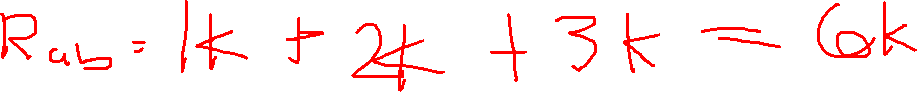 Rab = 1k + 2k + 3k = 6k